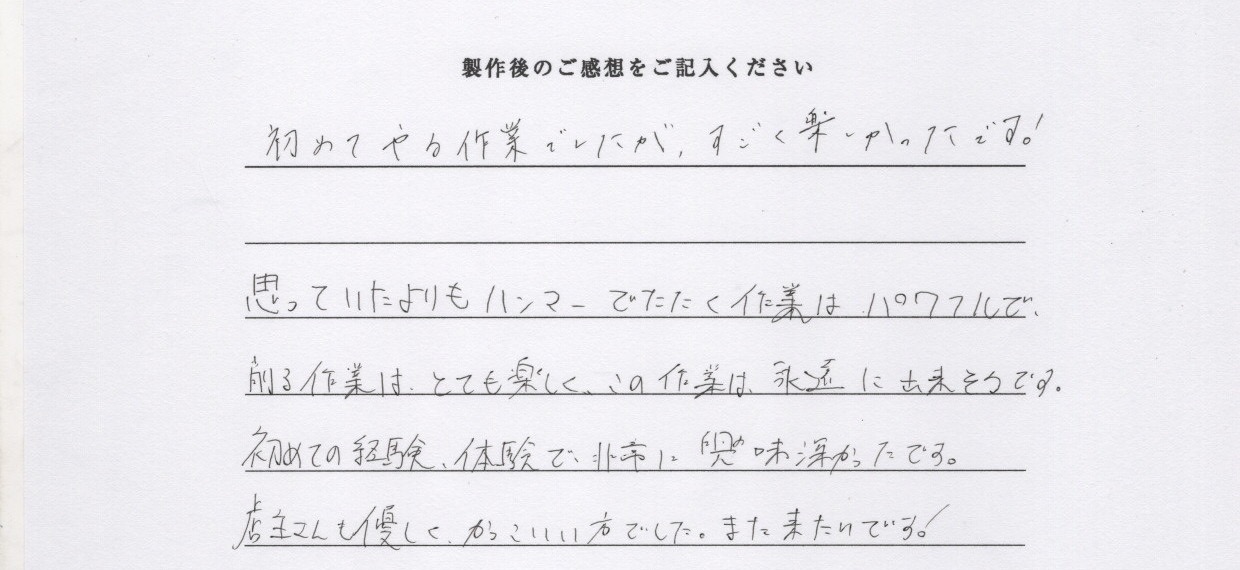 製作後のご感想をご記入ください
初めてやる作業でしたが、すごく楽しかったです!
思っていたよりもハンマーでたたく作業はパワフルで、
削る作業は、とても楽しく、この作業は、永遠に出来そうです。
初めての経験、体験で、非常に興味深かったです。
店主さんも優しく、かっこいい方でした。また来たいです!